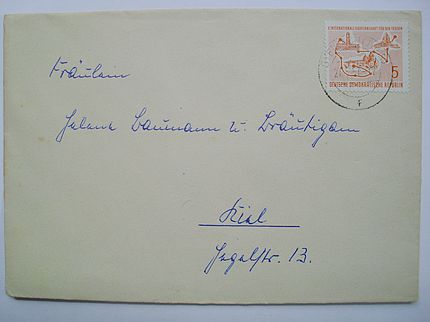 X. INTERNATIONALE RADFERNFAHRT FÜR DEN FRIEDEN
5
DEUTSCHE DEMOKRATISCHE REPUBLIK
F
Fräulein
Helene Baumann u. Bräutigam
Kiel
Hegelstr. 13.